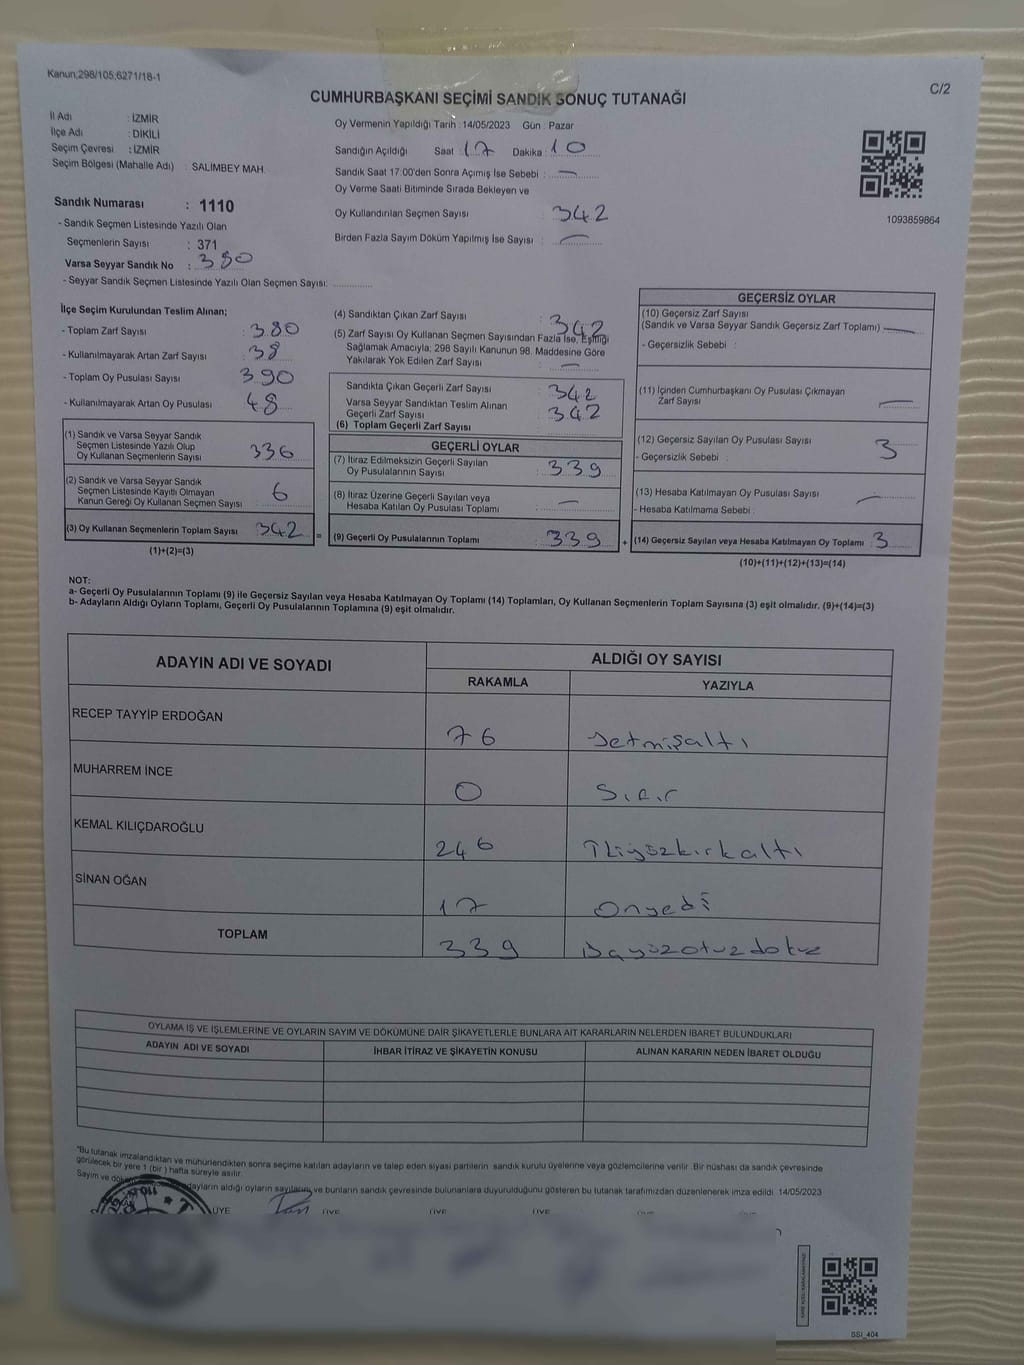 Kanun;298/105;6271/18-1
C/2
CUMHURBAŞKANI SEÇİMİ SANDIK SONUÇ TUTANAĞI
İl Adı : İZMİR
İlçe Adı : DİKİLİ
Seçim Çevresi : İZMİR
Seçim Bölgesi (Mahalle Adı) : SALİMBEY MAH.
Sandık Numarası : 1110
- Sandık Seçmen Listesinde Yazılı Olan
Seçmenlerin Sayısı : 371
Varsa Seyyar Sandık No : 380
- Seyyar Sandık Seçmen Listesinde Yazılı Olan Seçmen Sayısı:
Oy Vermenin Yapıldığı Tarih : 14/05/2023 Gün : Pazar
Sandığın Açıldığı Saat : 17 Dakika : 10
Sandık Saat 17.00'den Sonra Açımış İse Sebebi : —
Oy Verme Saati Bitiminde Sırada Bekleyen ve
Oy Kullandırılan Seçmen Sayısı : 342
Birden Fazla Sayım Döküm Yapılmış İse Sayısı : —
1093859864
İlçe Seçim Kurulundan Teslim Alınan;
- Toplam Zarf Sayısı : 380
- Kullanılmayarak Artan Zarf Sayısı : 38
- Toplam Oy Pusulası Sayısı : 390
- Kullanılmayarak Artan Oy Pusulası : 48
(1) Sandık ve Varsa Seyyar Sandık
Seçmen Listesinde Yazılı Olup
Oy Kullanan Seçmenlerin Sayısı 336
(2) Sandık ve Varsa Seyyar Sandık
Seçmen Listesinde Kayıtlı Olmayan
Kanun Gereği Oy Kullanan Seçmen Sayısı 6
(3) Oy Kullanan Seçmenlerin Toplam Sayısı 342 =
(1)+(2)=(3)
(4) Sandıktan Çıkan Zarf Sayısı : 342
(5) Zarf Sayısı Oy Kullanan Seçmen Sayısından Fazla İse, Eşitliği
Sağlamak Amacıyla; 298 Sayılı Kanunun 98. Maddesine Göre
Yakılarak Yok Edilen Zarf Sayısı : —
Sandıkta Çıkan Geçerli Zarf Sayısı : 342
Varsa Seyyar Sandıktan Teslim Alınan
Geçerli Zarf Sayısı : 342
(6) Toplam Geçerli Zarf Sayısı
GEÇERLİ OYLAR
(7) İtiraz Edilmeksizin Geçerli Sayılan
Oy Pusulalarının Sayısı : 339
(8) İtiraz Üzerine Geçerli Sayılan veya
Hesaba Katılan Oy Pusulası Toplamı : —
(9) Geçerli Oy Pusulalarının Toplamı : 339 +
GEÇERSİZ OYLAR
(10) Geçersiz Zarf Sayısı
(Sandık ve Varsa Seyyar Sandık Geçersiz Zarf Toplamı) —
- Geçersizlik Sebebi :
(11) İçinden Cumhurbaşkanı Oy Pusulası Çıkmayan
Zarf Sayısı —
(12) Geçersiz Sayılan Oy Pusulası Sayısı : 3
- Geçersizlik Sebebi :
(13) Hesaba Katılmayan Oy Pusulası Sayısı : —
- Hesaba Katılmama Sebebi :
(14) Geçersiz Sayılan veya Hesaba Katılmayan Oy Toplamı 3
(10)+(11)+(12)+(13)=(14)
NOT:
a- Geçerli Oy Pusulalarının Toplamı (9) ile Geçersiz Sayılan veya Hesaba Katılmayan Oy Toplamı (14) Toplamları, Oy Kullanan Seçmenlerin Toplam Sayısına (3) eşit olmalıdır. (9)+(14)=(3)
b- Adayların Aldığı Oyların Toplamı, Geçerli Oy Pusulalarının Toplamına (9) eşit olmalıdır.
ADAYIN ADI VE SOYADI ALDIĞI OY SAYISI
RAKAMLA YAZIYLA
RECEP TAYYİP ERDOĞAN 76 Yetmişaltı
MUHARREM İNCE 0 Sıfır
KEMAL KILIÇDAROĞLU 246 İkiyüzkırkaltı
SİNAN OĞAN 17 Onyedi
TOPLAM 339
OYLAMA İŞ VE İŞLEMLERİNE VE OYLARIN SAYIM VE DÖKÜMÜNE DAİR ŞİKAYETLERLE BUNLARA AİT KARARLARIN NELERDEN İBARET BULUNDUKLARI
ADAYIN ADI VE SOYADI İHBAR İTİRAZ VE ŞİKAYETİN KONUSU ALINAN KARARIN NEDEN İBARET OLDUĞU
*Bu tutanak imzalandıktan ve mühürlendikten sonra seçime katılan adayların ve talep eden siyasi partilerin sandık kurulu üyelerine veya gözlemcilerine verilir. Bir nüshası da sandık çevresinde
görülecek bir yere 1 (bir) hafta süreyle asılır.
Sayım ve adayların aldığı oyların sayılarını ve bunların sandık çevresinde bulunanlara duyurulduğunu gösteren bu tutanak tarafımızdan düzenlenerek imza edildi. 14/05/2023
ÜYE ÜYE ÜYE ÜYE
SSİ_404